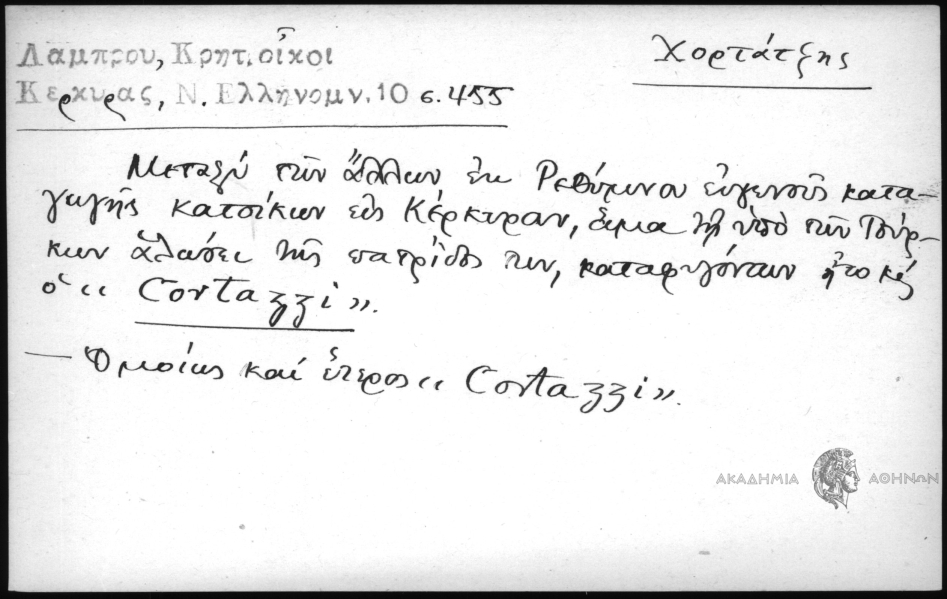 Λαμπρου, Κρητ. οἶκοι
Χορτάτζης
Κερκυρας, Ν. Ελλήνομν. 10 σ. 455
Μεταξύ τῶν ἄλλων ἐκ Ρεθύμνου εὐγενοῦς κατα-
γωγῆς κατοίκων εἰς Κέρκυραν, ἅμα τῇ ὑπό τῶν Τούρ-
κων ἁλώσει τῆς πατρίδος των, καταφυγόντων ἦτο καί
ὁ "Cortazzi".
— Ὁμοίως καί ἕτερος "Cortazzi".
ΑΚΑΔΗΜΙΑ ΑΘΗΝΩΝ